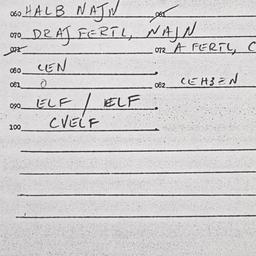 060 HALB NAJN 061
070 DRAJ FERTL, NAJN
071 072 A FERTL, C
080 CEN
081 0 082 CEHSEN
090 ELF / ELF
100 CVELF